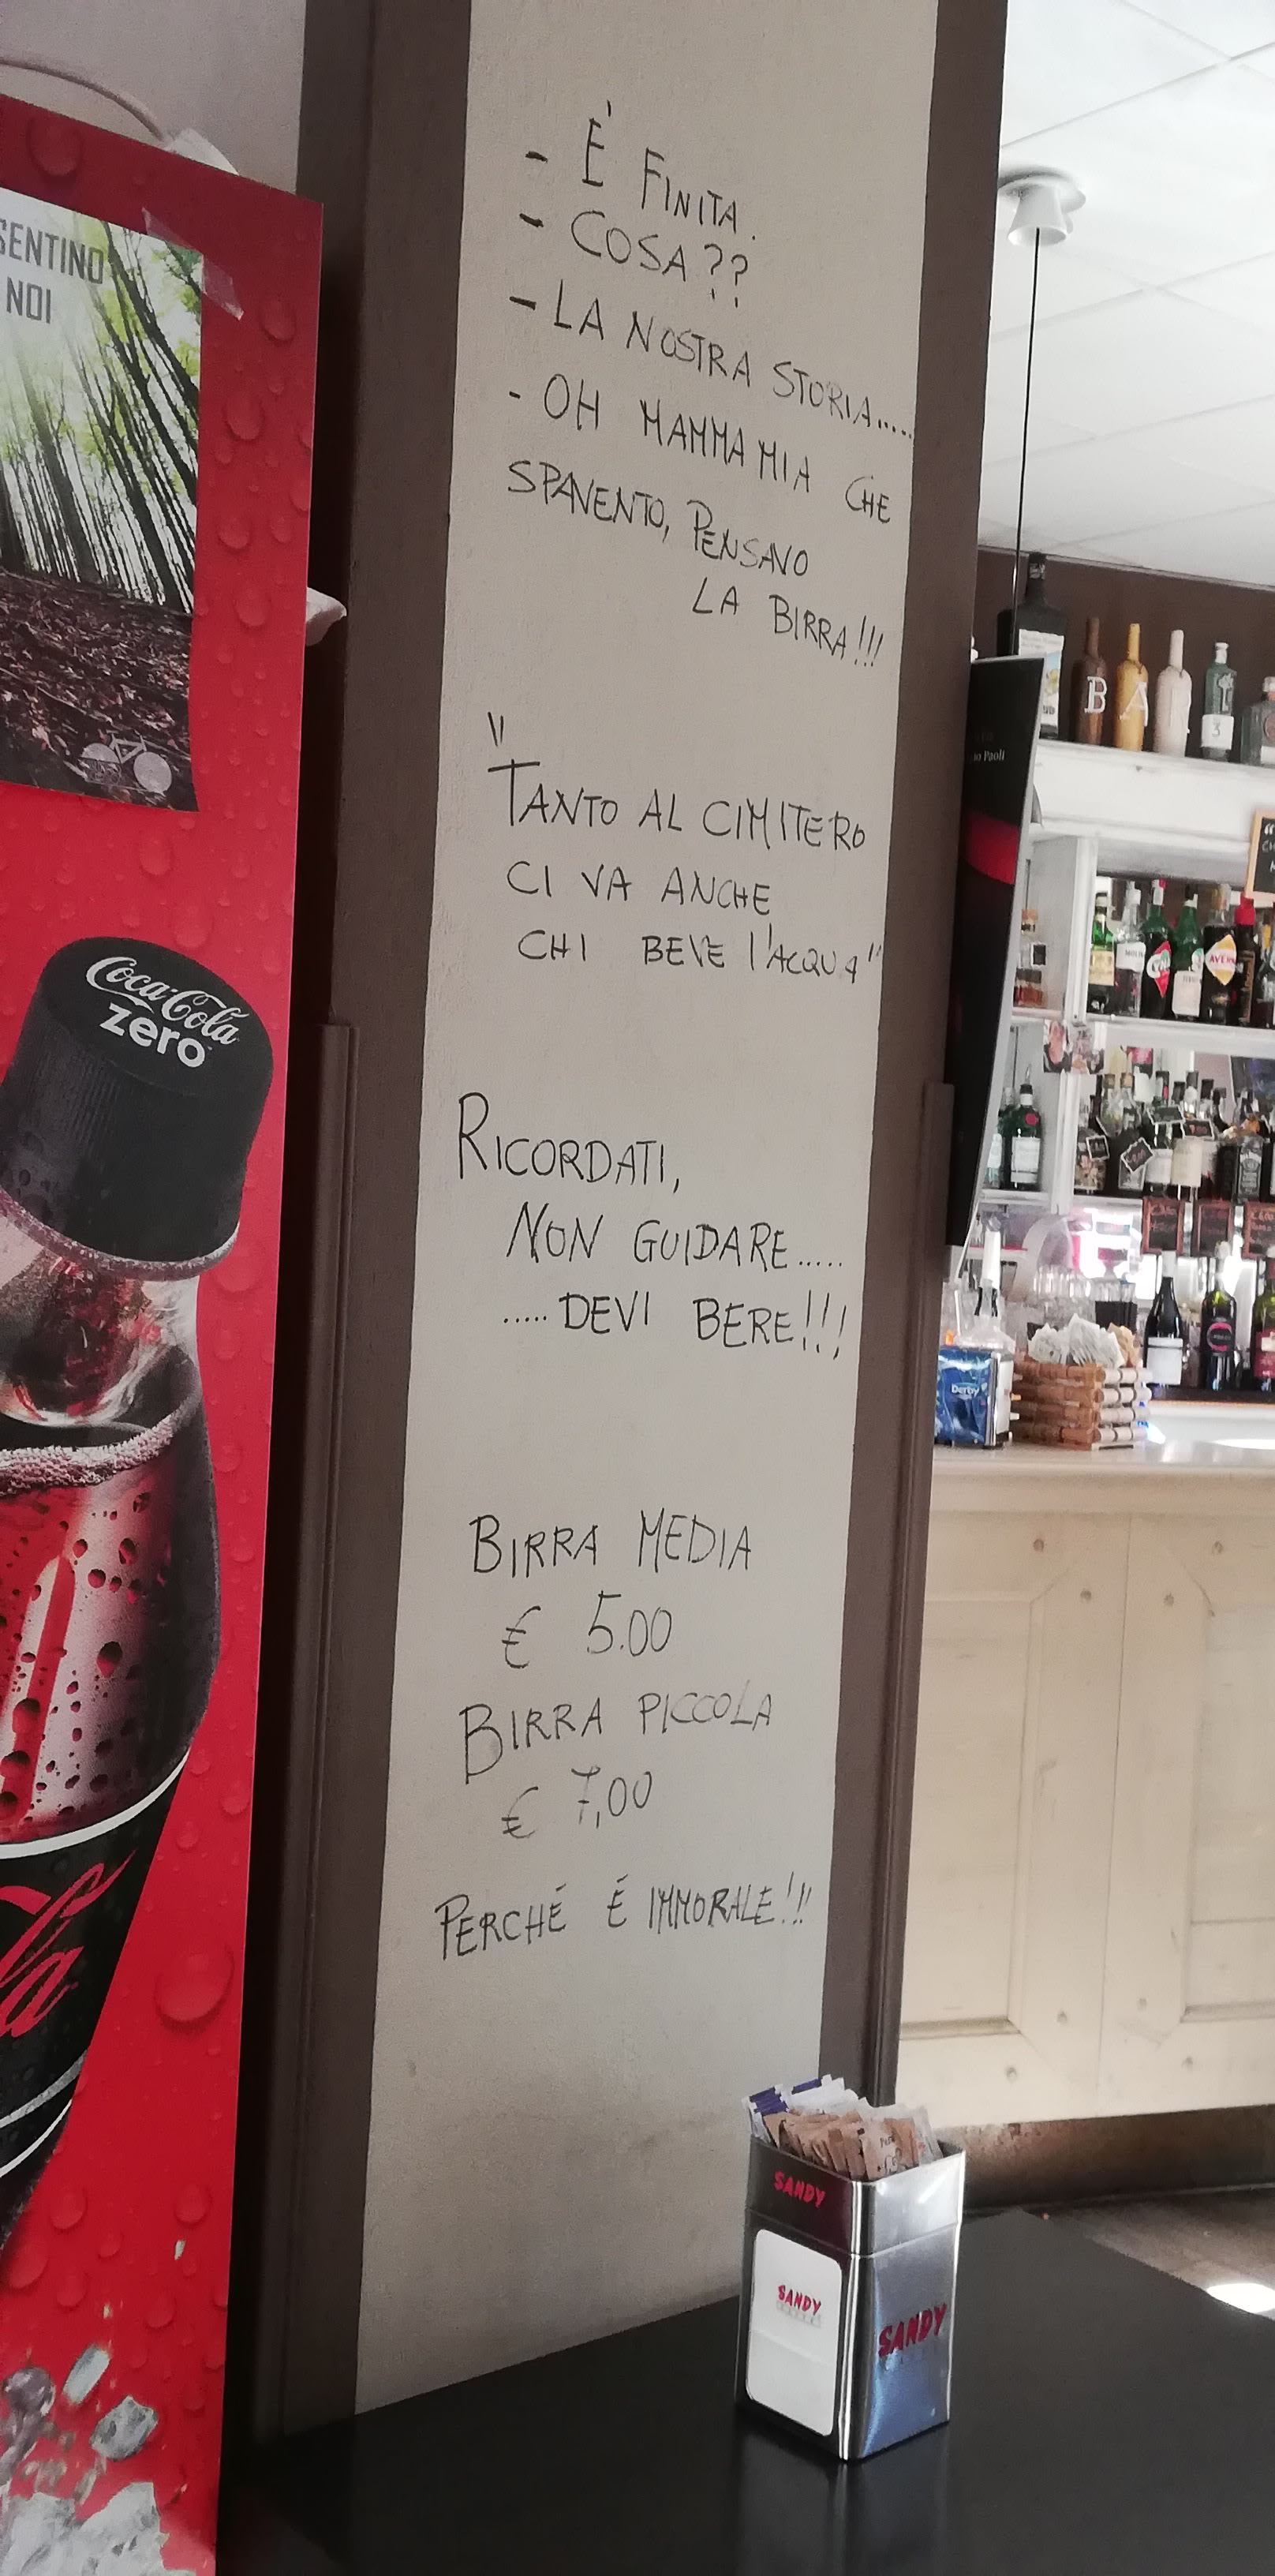 SENTINO
NOI
- È FINITA.
- COSA??
- LA NOSTRA STORIA.....
- OH MAMMA MIA CHE
SPAVENTO, PENSAVO
LA BIRRA!!!
"TANTO AL CIMITERO
CI VA ANCHE
CHI BEVE l'ACQUA"
RICORDATI,
NON GUIDARE.....
.....DEVI BERE!!!
BIRRA MEDIA
€ 5.00
BIRRA PICCOLA
€ 7,00
PERCHÉ É IMMORALE!!!
Coca-Cola
zero
la
BA
3
Paoli
Derby
SANDY
SANDY
SANDY